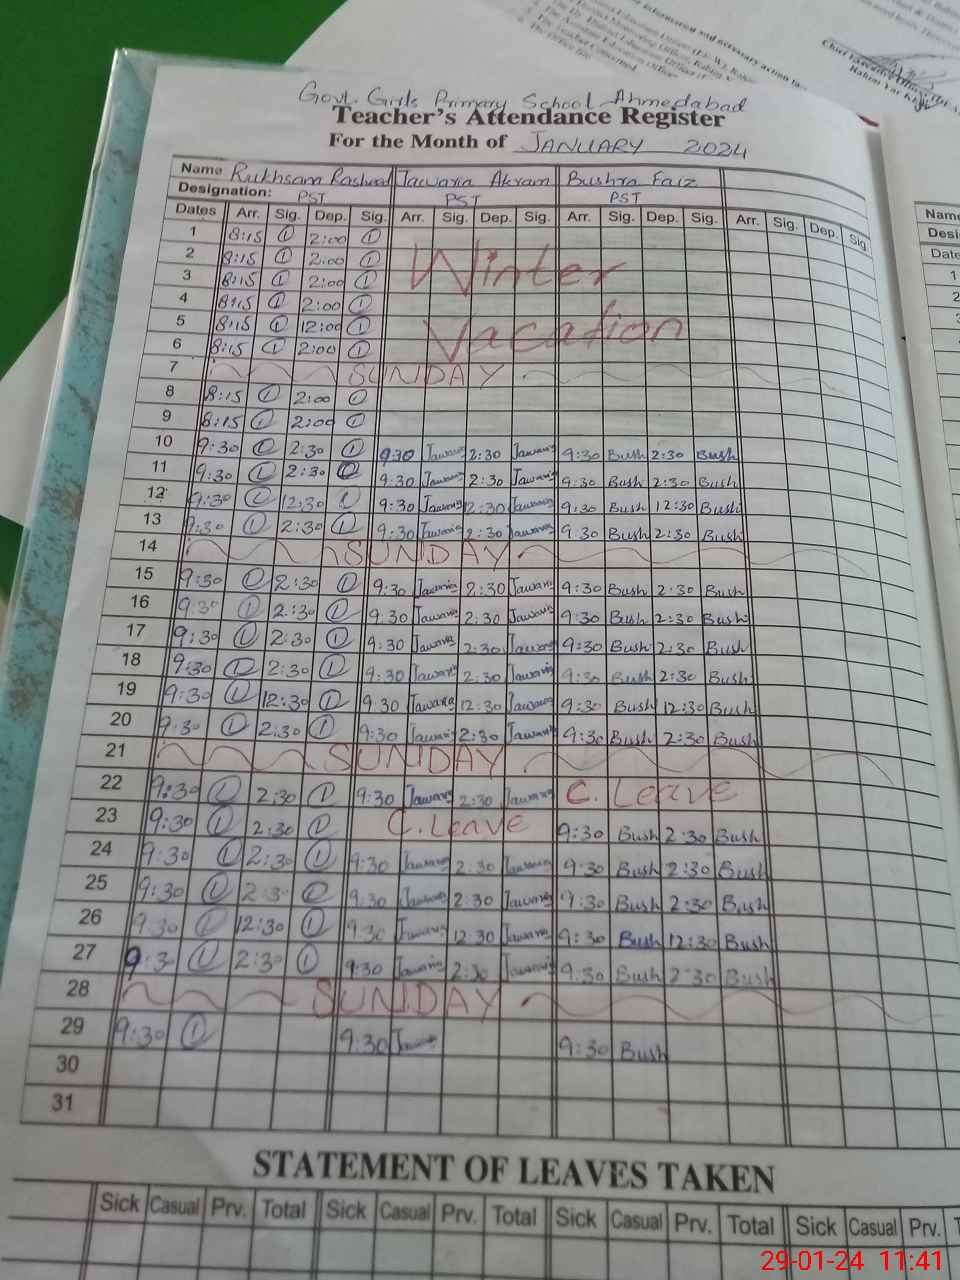 Govt. Girls Primary School Ahmedabad
Teacher's Attendance Register
For the Month of JANUARY 2024
Name Rukhsana Rashed Jawaria Akram Bushra Faiz
Designation: PST PST PST
Dates Arr. Sig. Dep. Sig. Arr. Sig. Dep. Sig. Arr. Sig. Dep. Sig. Arr. Sig. Dep. Sig.
1 8:15 2:00
2 8:15 2:00 Winter
3 8:15 2:00
4 8:15 2:00
5 8:15 12:00 Vacation
6 8:15 2:00
7 SUNDAY
8 8:15 2:00
9 8:15 2:00
10 9:30 2:30 9:30 Jawaria 2:30 Jawaria 9:30 Bush 2:30 Bush
11 9:30 2:30 9:30 Jawaria 2:30 Jawaria 9:30 Bush 2:30 Bush
12 9:30 12:30 9:30 Jawaria 12:30 Jawaria 9:30 Bush 12:30 Bush
13 9:30 2:30 9:30 Jawaria 2:30 Jawaria 9.30 Bush 2:30 Bush
14 SUNDAY
15 9:30 2:30 9:30 Jawaria 2:30 Jawaria 9:30 Bush 2:30 Bush
16 9:30 2:30 9.30 Jawaria 2:30 Jawaria 9:30 Bush 2:30 Bush
17 9:30 2:30 9:30 Jawaria 2:30 Jawaria 9:30 Bush 2:30 Bush
18 9:30 2:30 9:30 Jawaria 2:30 Jawaria 9:30 Bush 2:30 Bush
19 9:30 12:30 9.30 Jawaria 12:30 Jawaria 9:30 Bush 12:30 Bush
20 9:30 2:30 9:30 Jawaria 2:30 Jawaria 9:30 Bush 2:30 Bush
21 SUNDAY
22 9:30 2:30 9:30 Jawaria 2:30 Jawaria C. Leave
23 9:30 2:30 C. Leave 9:30 Bush 2:30 Bush
24 9:30 2:30 9:30 Jawaria 2:30 Jawaria 9:30 Bush 2:30 Bush
25 9:30 2:3 9:30 Jawaria 2:30 Jawaria 9:30 Bush 2:30 Bush
26 9:30 12:30 9:30 Jawaria 12:30 Jawaria 9:30 Bush 12:30 Bush
27 9:3 2:30 9:30 Jawaria 2:30 Jawaria 9:30 Bush 2:30 Bush
28 SUNDAY
29 9:30 9:30 Jawa 9:30 Bush
30
31
STATEMENT OF LEAVES TAKEN
Sick Casual Prv. Total Sick Casual Prv. Total Sick Casual Prv. Total Sick Casual Prv.
29-01-24 11:41